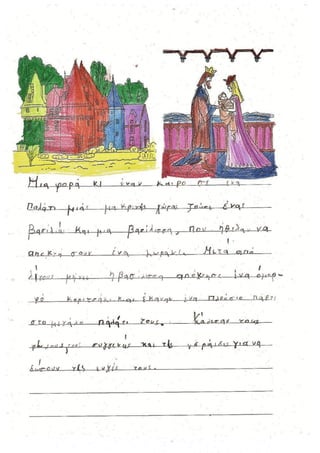 Μια φορά κι έναν καιρό σε ένα
παλάτι μιας μακρινής χώρας ζούσε ένας
βασιλιάς και μια βασίλισσα, που ήθελαν να
αποκτήσουν ένα μωράκι. Μετά από
λίγους μήνες η βασίλισσα απέκτησε ένα όμορ-
φο κοριτσάκι και έκαναν ένα πλούσιο πάρτι
στο μεγάλο παλάτι τους. Κάλεσαν τους
συγγενείς και τις νεράιδες για να
δώσουν τις ευχές τους.